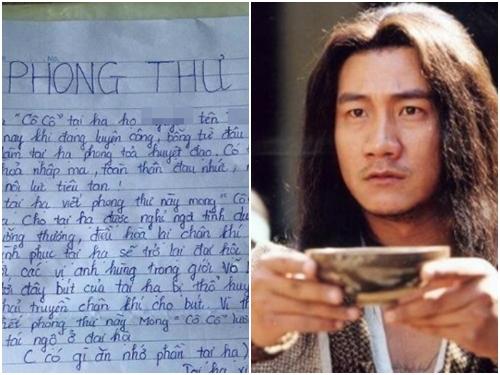 PHONG THƯ
"Cô Cô" tại hạ họ tên
nay khi đang luyện công, bỗng từ đâu
tại hạ phong toả huyệt đạo. Có
hoả nhập ma, toàn thân đau nhức,
nội lực tiêu tan!
tại hạ viết phong thư này mong "Cô
Cho tại hạ được nghỉ ngơi tĩnh dư
thương, điều hoà lại chân khí
phục tại hạ sẽ trở lại đại hội
các vị anh hùng trong giới Võ
đây bút của tại hạ bị thổ huy
truyền chân khí cho bút. Vì th
viết phong thư này Mong "Cô Cô" lư
tại ngộ ở đại hạ
C có gì ăn nhớ phần tại hạ)
Tại hạ